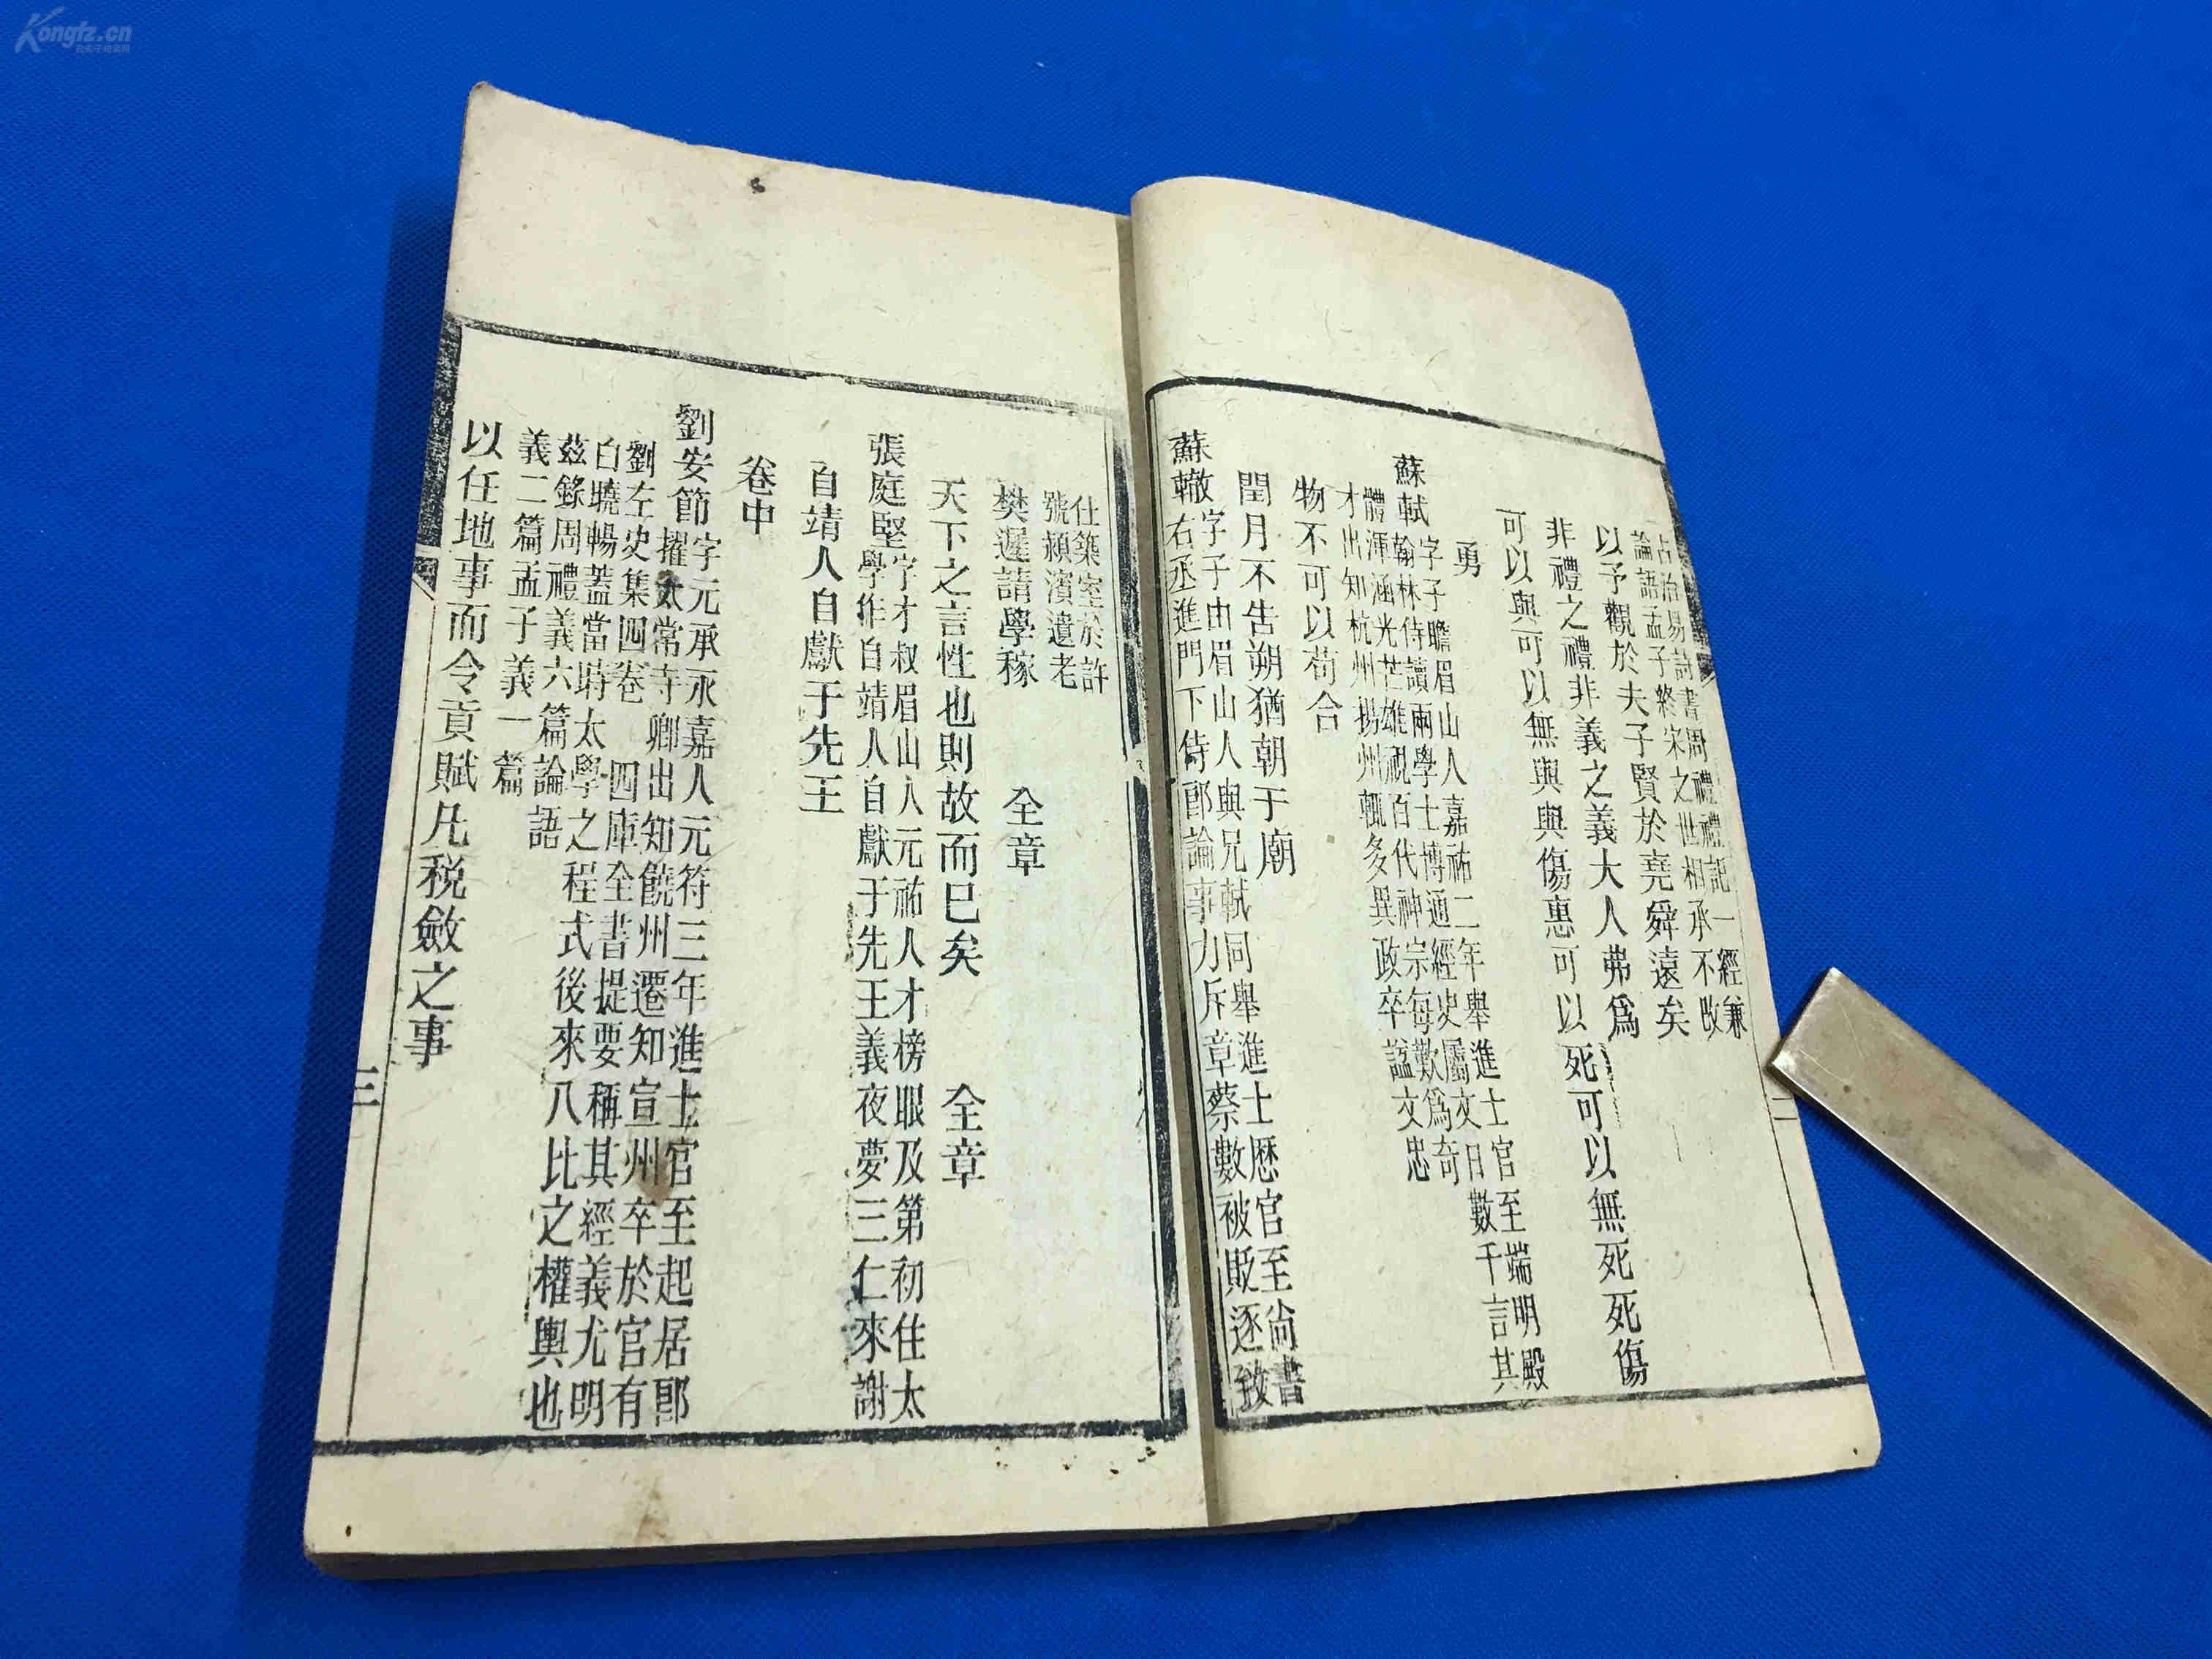 占治易詩書周禮禮記一經兼
論語孟子終宋之世相承不改
以予觀於夫子賢於堯舜遠矣
非禮之禮非義之義大人弗爲
可以與可以無與與傷惠可以死可以無死死傷
勇
蘇軾
字子瞻眉山人嘉祐二年舉進士官至端明殿
翰林侍讀兩學士博通經史屬文日數千言其
體渾涵光芒雄視百代神宗每歎爲奇
才出知杭州揚州輒多異政卒諡文忠
物不可以苟合
閏月不告朔猶朝于廟
蘇轍
字子由眉山人與兄軾同舉進士歷官至尚書
右丞進門下侍郎論事力斥章蔡數被貶逐致
仕築室於許
號潁濱遺老
樊遲請學稼 全章
天下之言性也則故而已矣 全章
張庭堅
字才叔眉山人元祐人才榜眼及第初任太
學作自靖人自獻于先王義夜夢三仁來謝
自靖人自獻于先王
卷中
劉安節
字元承永嘉人元符三年進士官至起居郎
擢太常寺卿出知饒州遷知宣州卒於官有
劉左史集四卷 四庫全書提要稱其經義尤明
白曉暢蓋當時太學之程式後來八比之權輿也
茲錄周禮義六篇論語
義二篇孟子義一篇
以任地事而令貢賦凡稅斂之事
三
二
Kongfz.cn